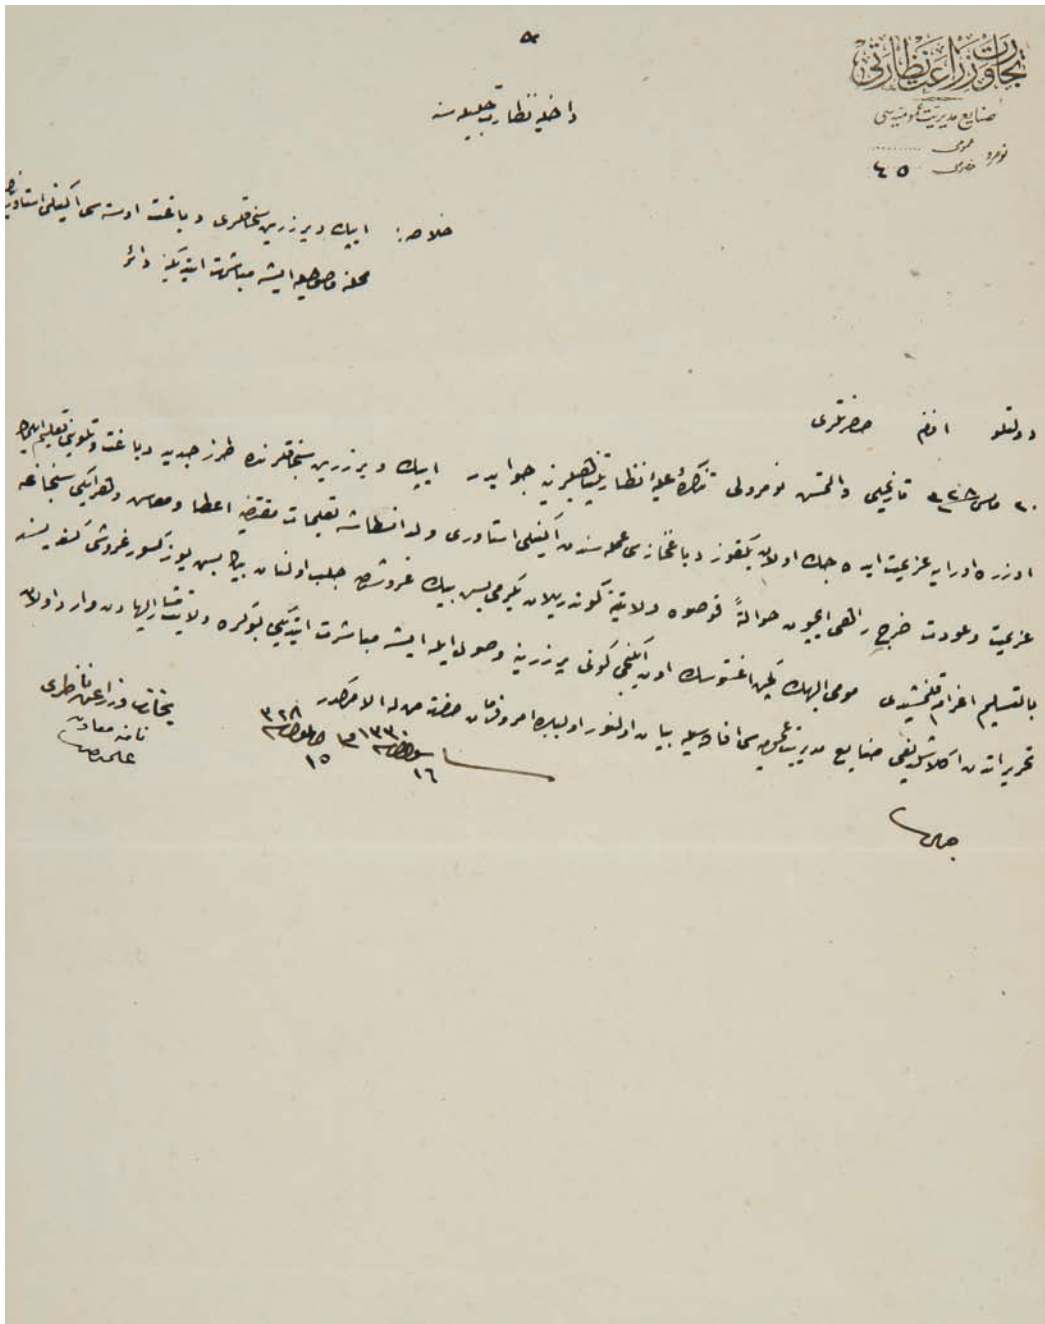 تجارت و زراعت نظارتی
صنایع مدیریت عمومیه‌سی
نومرو
عمومی
خصوصی ٤٥
داخلیه نظارت جلیله‌سنه
خلاصه: ایپك و پرزرین سنجاقلری دباغت اوسته‌سی
محلنه وصولیله ایشه مباشرت ایتدیكنه دائر
دولتلو افندم حضرتلری
تاریخلی و التمش نومرولی تذكرۀ علیۀ نظارتپناهیلرینه جوابدر ایپك و پرزرین سنجاقلرنده طرز جدید دباغت و تلوینی تعلیم ایلمك
اوزره اورایه عزیمت ایده‌جك اولان بیقوز دباغخانه‌سی عمله‌سندن استاوری ولد تعلیمات مقتضیه اعطا و معاش
عزیمت و عودت خرج راهی ایچون حوالةً قوصوه ولایتنه كوندریلان یكرمی بش بیك غروشدن جلب اولنان بیك بش یوز كسور غروش كندیسنه
بالتسلیم اعزام قلنمشیدی مومی الیهك كچن اغستوسك اون ایكنجی كونی پرزرینه وصول ایله ایشه مباشرت ایتدیكی بوكره ولایت مشارالیهادن وارد اولان
تحریراتدن اكلاشلدیغی صنایع مدیریت عمومیه‌سی افاده‌سیله بیان اولنور اولبابده امر و فرمان حضرت من له الامركدر
٣٣٠ ١٦
٣٢٨ ١٥
تجارت و زراعت ناظری
نامنه معاون